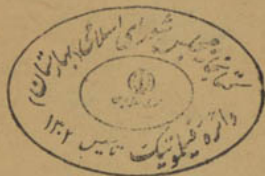 کتابخانه مجلس شورای اسلامی (بهارستان)
دائره فیلموتیک تأسیس ۱۳۰۲